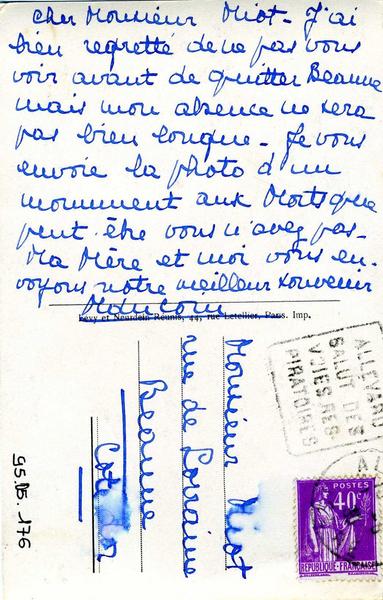 Cher Monsieur Miot - J'ai
bien regretté de ne pas vous
voir avant de quitter Beaune
mais mon absence ne sera
pas bien longue - Je vous
envoie la photo d'un
monument aux Morts que
peut-être vous n'avez pas -
Ma Mère et moi vous en-
voyons notre meilleur souvenir
Lévy et Neurdein Réunis, 44, rue Letellier, Paris. Imp.
Monsieur Miot
rue de Lorraine
Beaune
Côte d'or
ALLEVARD
SALUT DES
VOIES RES-
PIRATOIRES
POSTES
40c
RÉPUBLIQUE-FRANÇAISE